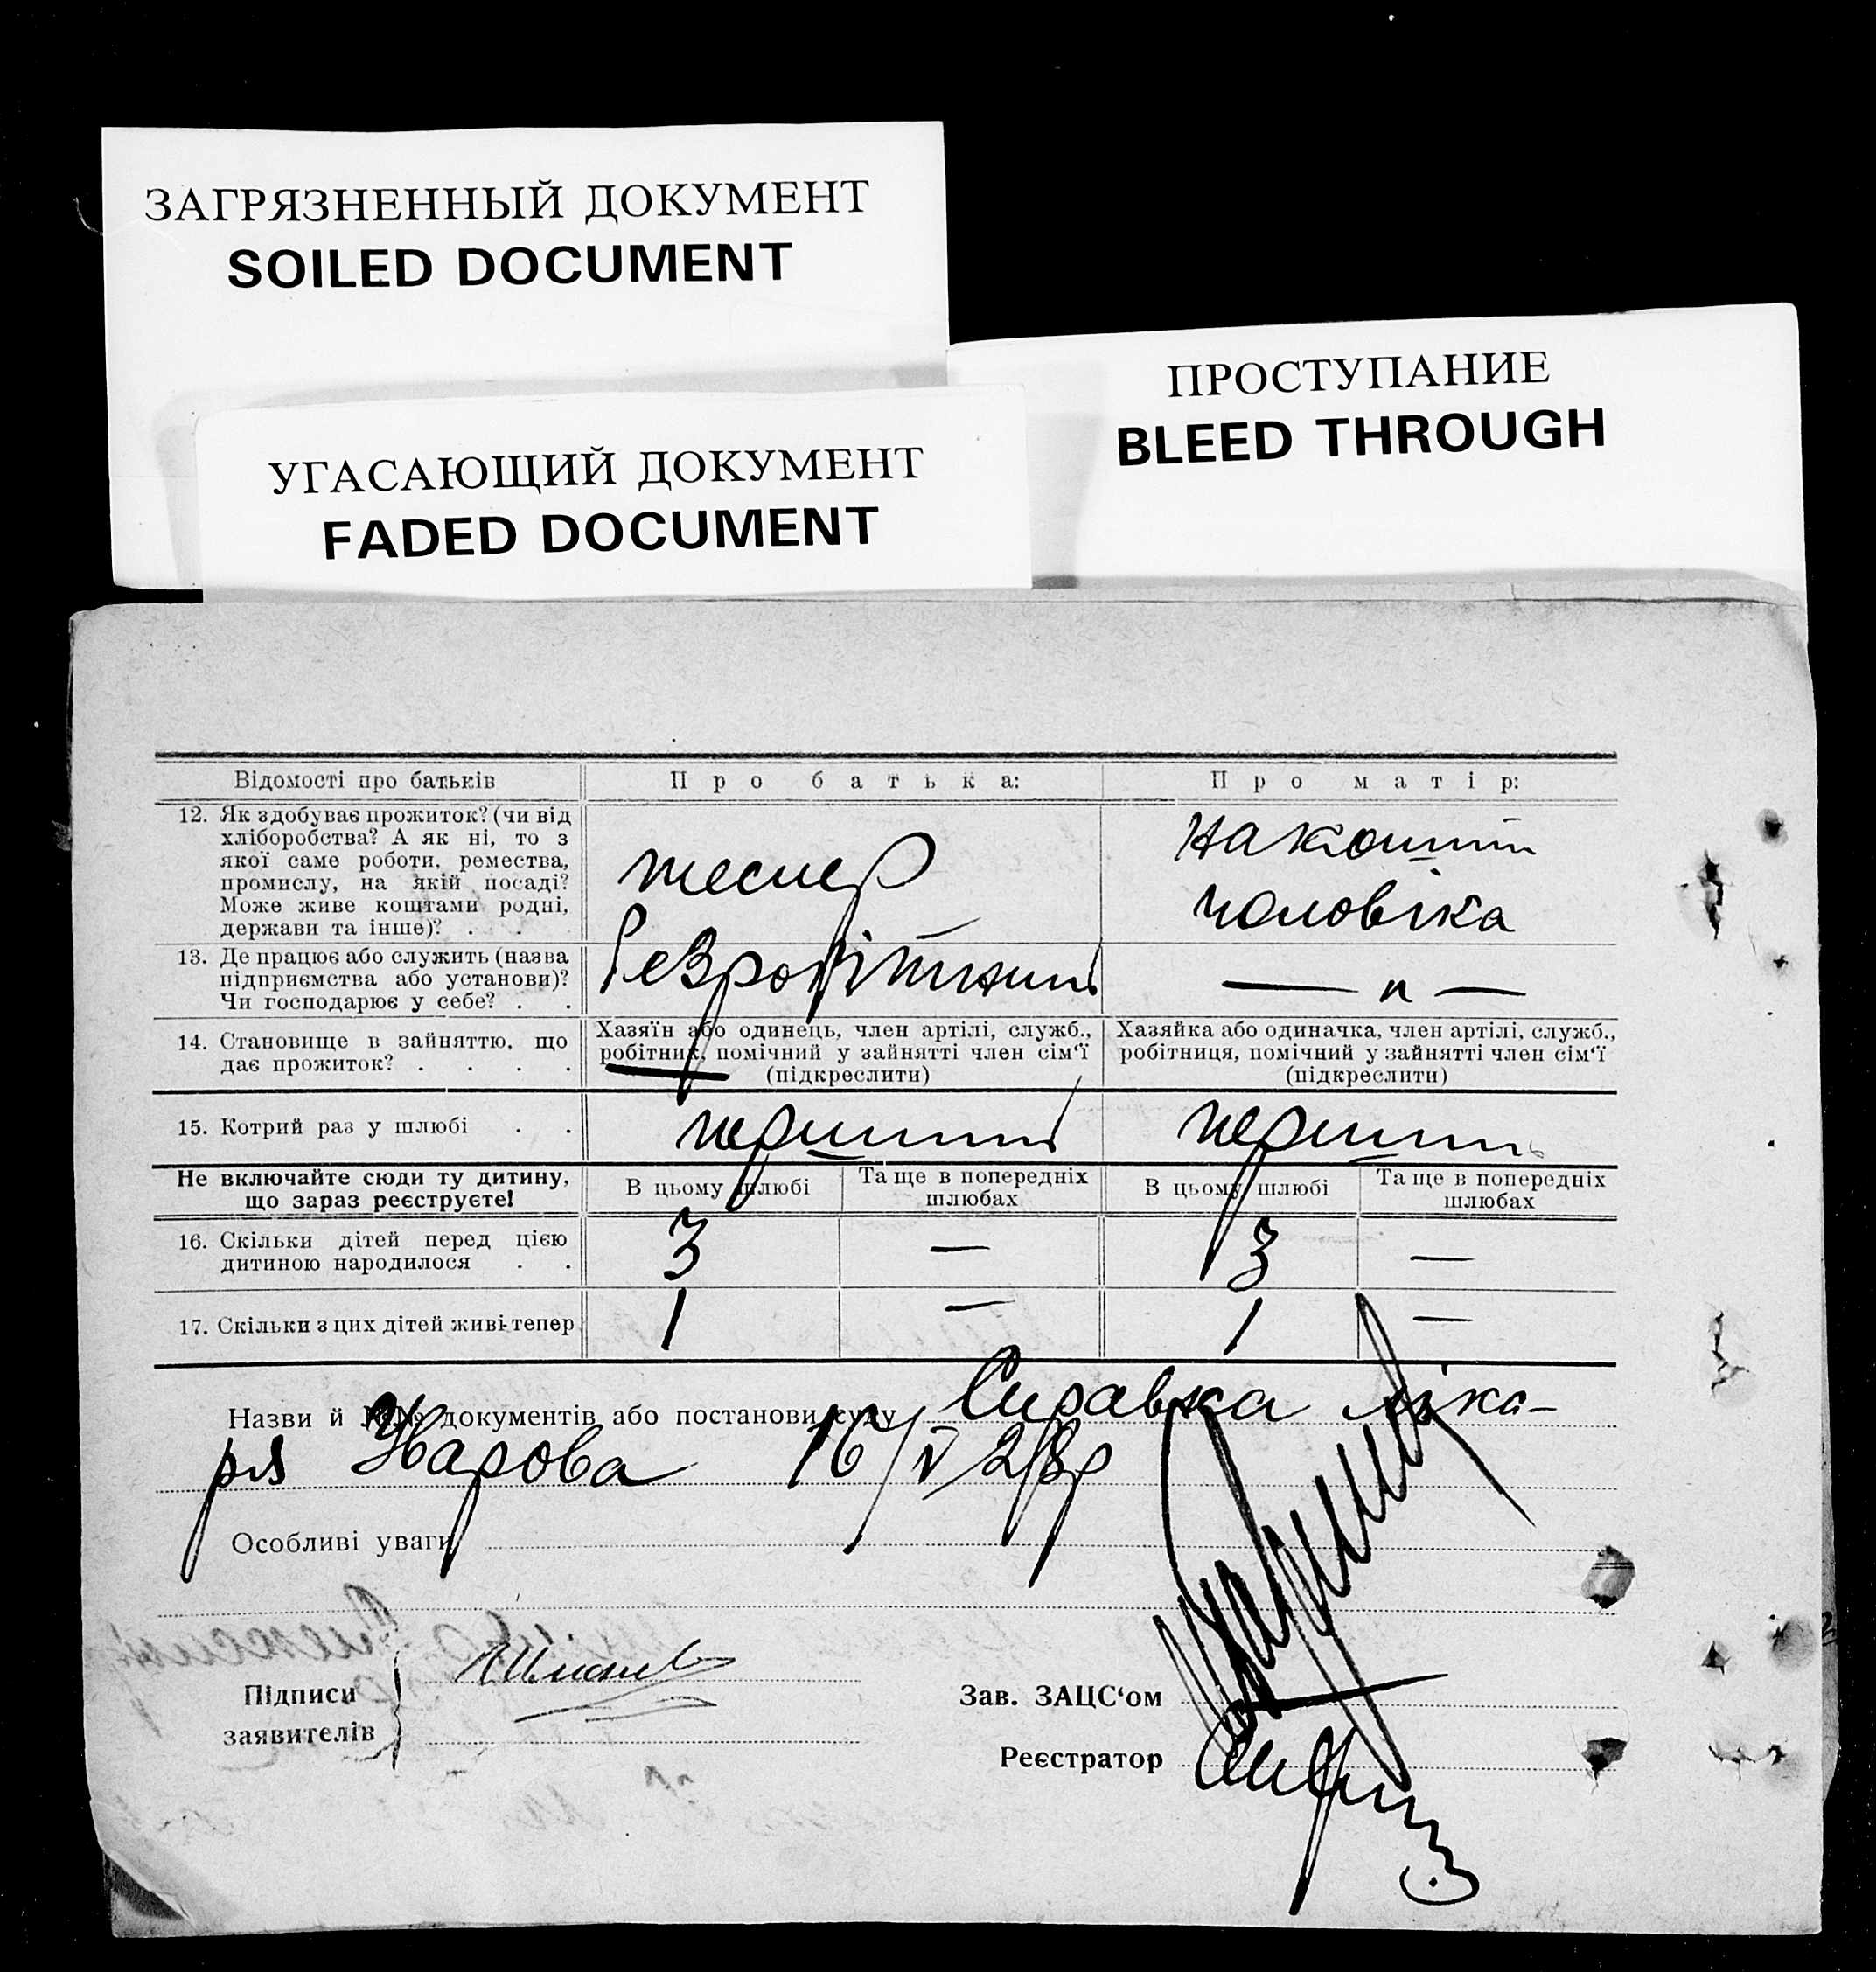 ЗАГРЯЗНЕННЫЙ ДОКУМЕНТ
SOILED DOCUMENT
ПРОСТУПАНИЕ
BLEED THROUGH
УГАСАЮЩИЙ ДОКУМЕНТ
FADED DOCUMENT
Відомості про батьків
Про батька:
Про матір:
12. Як здобуває прожиток? (чи від
хліборобства? А як ні, то з
якої саме роботи, ремества,
промислу, на якій посаді?
Може живе коштами родні,
держави та інше)? . .
тесляр
на кошти
чоловіка
13. Де працює або служить (назва
підприємства або установи)?
Чи господарює у себе? . .
безробітний
— " —
14. Становище в зайняттю, що
дає прожиток? . . . .
Хазяїн або одинець, член артілі, служб.,
робітник, помічний у зайнятті член сім'ї
(підкреслити)
Хазяйка або одиначка, член артілі, служб.,
робітниця, помічний у зайнятті член сім'ї
(підкреслити)
15. Котрий раз у шлюбі . .
перший
перший
Не включайте сюди ту дитину,
що зараз реєструєте!
В цьому шлюбі
Та ще в попередніх
шлюбах
В цьому шлюбі
Та ще в попередніх
шлюбах
16. Скільки дітей перед цією
дитиною народилося . .
3
—
3
—
17. Скільки з цих дітей живі тепер
1
—
1
—
Назви й №№ документів або постанови суду Справка ліка-
ря 16/V 28р
Особливі уваги
Підписи
заявителів
Зав. ЗАЦС'ом
Реєстратор